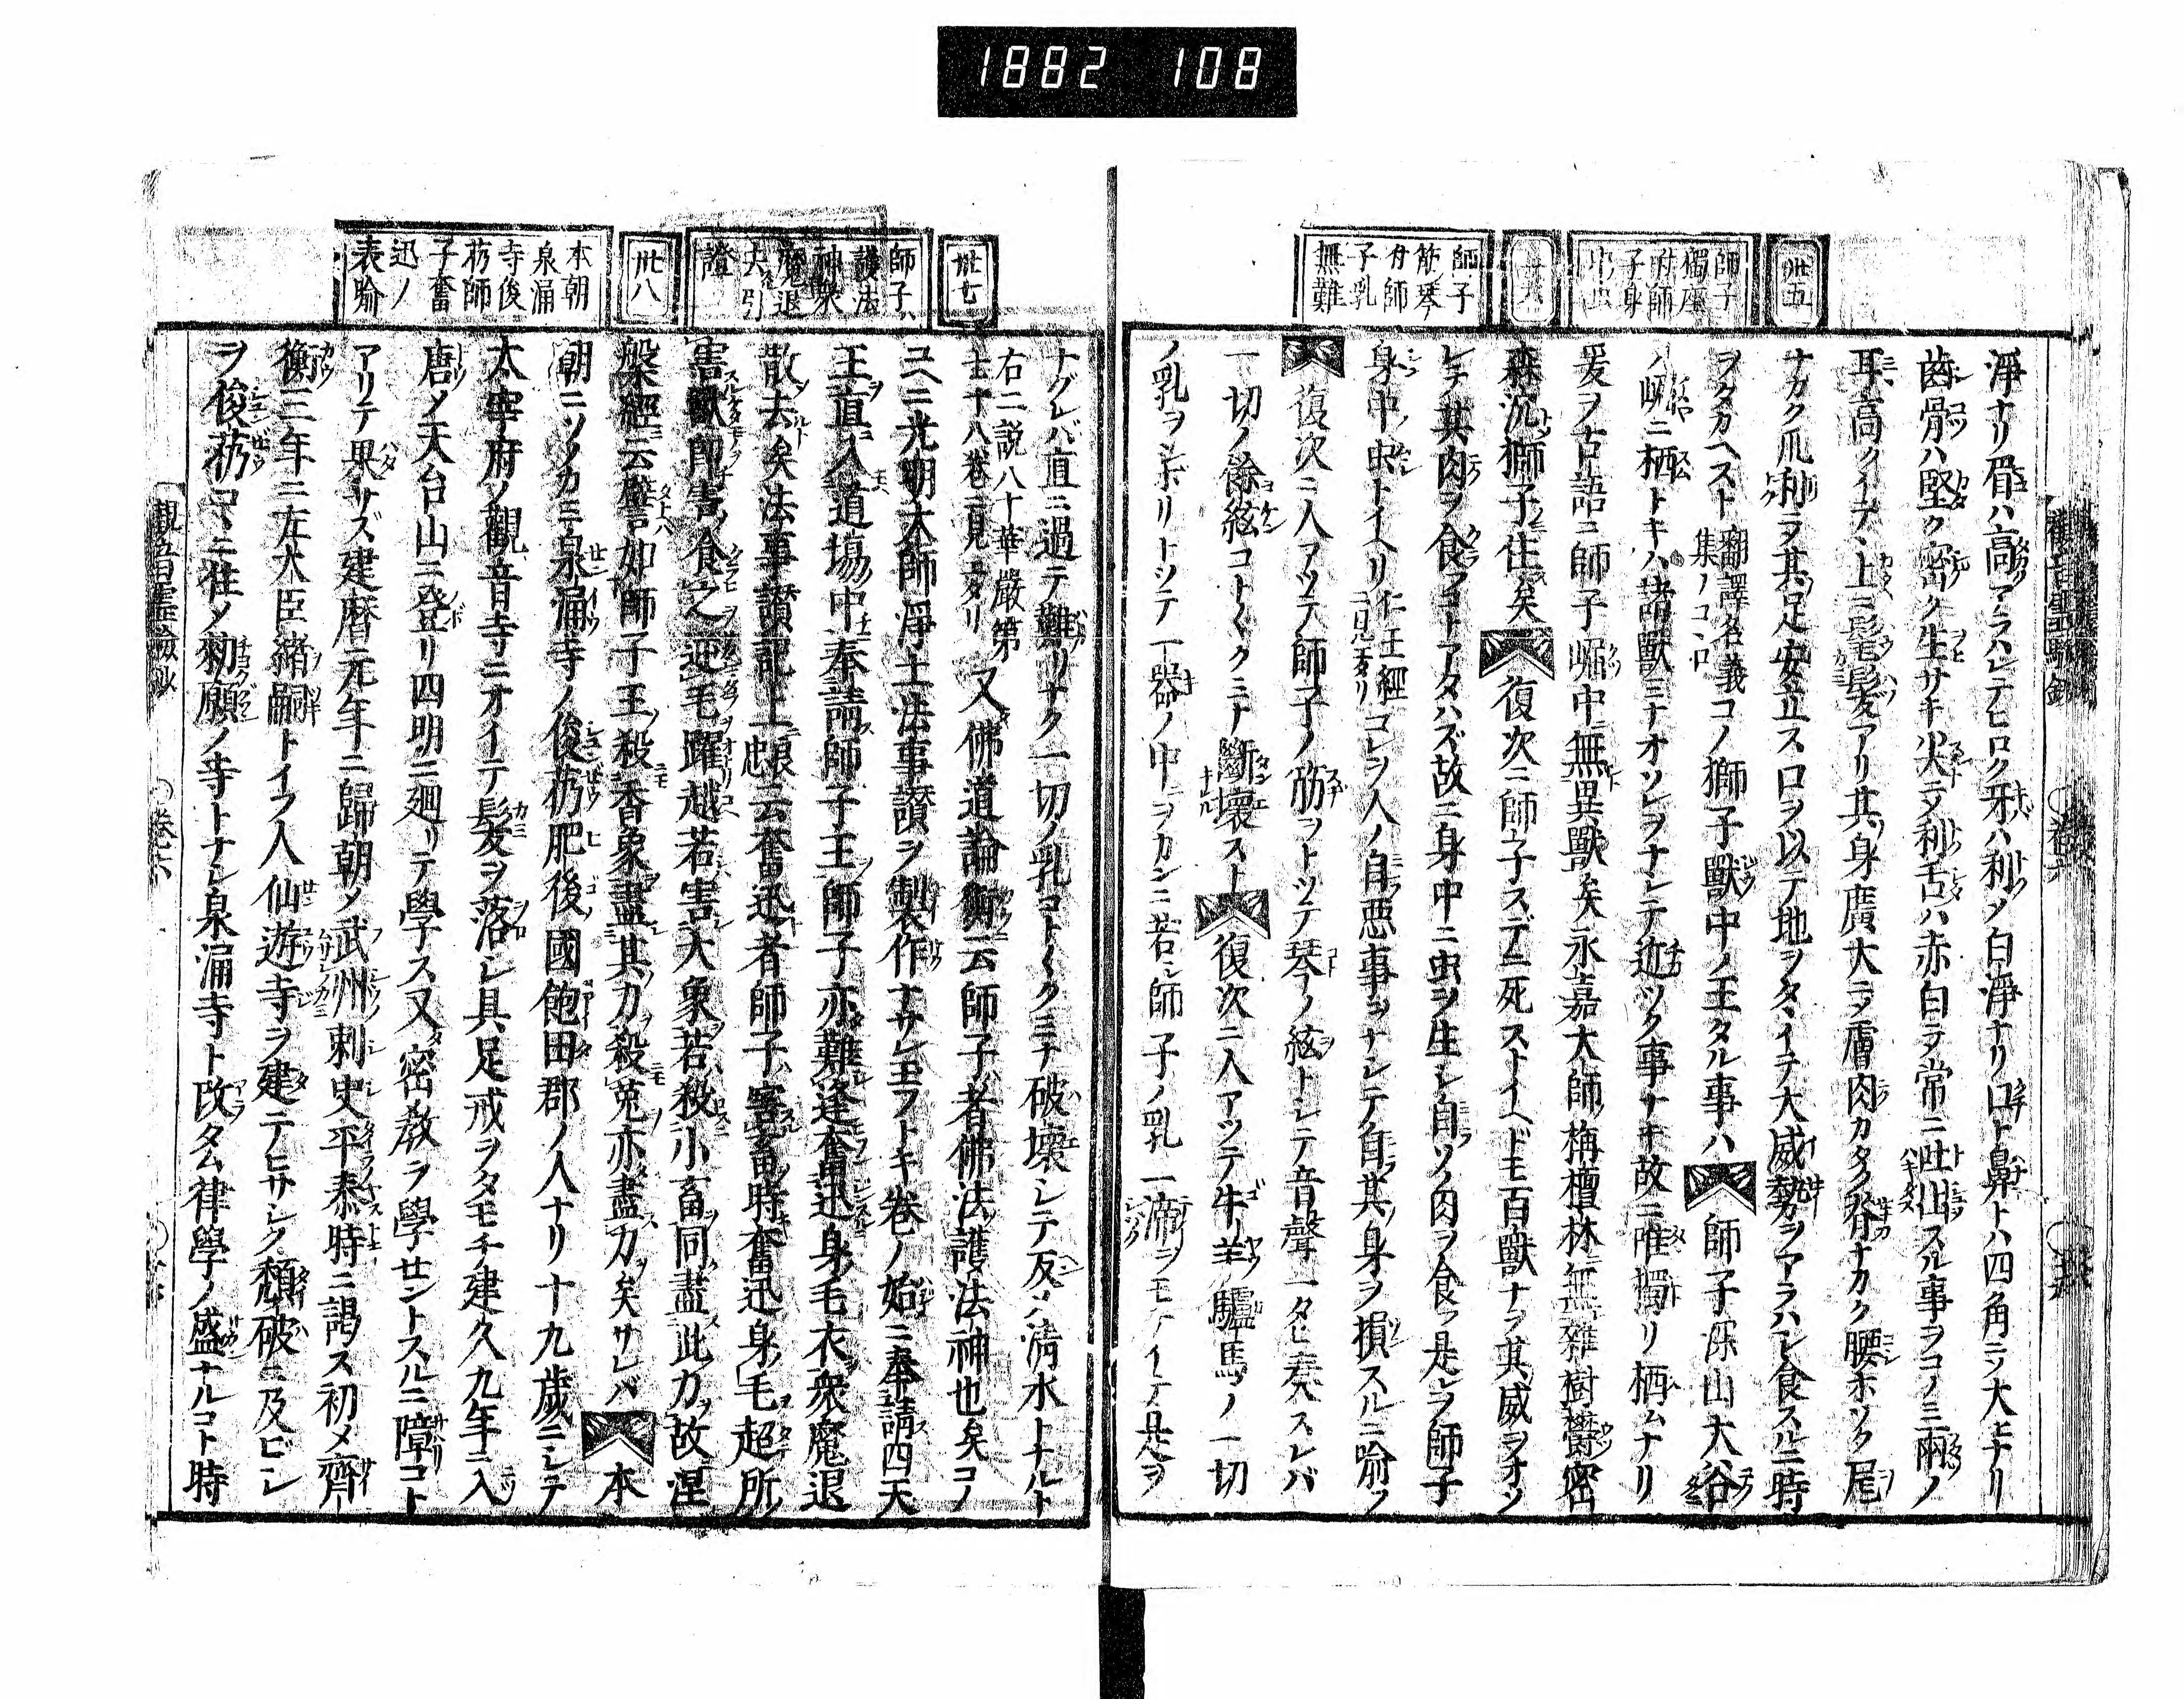 1882 108
卅五
師子
獨座
附師
子身
中虫
卅六
師子
筋琴
附師
子乳
無難
淨ナリ眉ハ高クアラハレテヒロク牙ハ利ノ白淨ナリ口ト鼻トハ四角ニノ大キナリ
齒骨ハ堅ク密ク生サキ尖ニ乄利舌ハ赤白ラ常ニ吐出スル事ヲコノミ兩ノ
耳高クイテ上ニ髦髮アリ其身廣大ニ乄膚肉カタク脊ナカク腰ホソク尾
ナカク爪利ヲ其足安立ス口ヲ以テ地ヲタヽイテ大威勢ヲアラハシ食スルニ時
ヲタカヘスト 翻譯名義集ノコヽロ コノ獅子獸中ノ王タル事ハ 師子深山大谷
ノ嶇ニ栖トキハ諸獸ミナオソレヲナシテ近ツク事ナキ故ニ唯獨リ栖ムナリ
爰ヲ古語ニ師子嶇中無異獸矣永嘉大師栴檀林無雜樹欝密
森沉獅子住矣 復次ニ師子スデニ死ストイヘドモ百獸ナヲ其威ヲオソ
レテ其肉ヲ食フコトアタハズ故ニ身中ニ虫ヲ生シ自ソノ肉ヲ食フ是ヲ師子
身中ノ虫トイヘリ 仁王經ニ見エタリ コレヲ人ノ自惡事ヲナシテ自其身ヲ損スルニ喩フ
復次ニ人アツテ師子ノ筋ヲトツテ琴ノ絃トシテ音聲一タヒ奏スレバ
一切ノ餘絃コト〱クミナ斷壞スト 復次ニ人アツテ牛羊驢馬ノ一切
ノ乳ヲシボリトツテ一器ノ中ニヲカンニ若シ師子ノ乳一滴ヲモテイテ是ヲ
觀音靈驗鈔 卷六
卅七
師子ハ
護法
神衆
魔退
去ノ引
證
卅八
本朝
泉涌
寺俊
芿師
子奮
迅ノ
表喩
トグレバ直ニ過テ難リナク一切ノ乳コト〱クミナ破壞シテ反ノ清水トナルト
右二説八十華嚴第七十八卷ニ見エタリ 又佛道論衡云師子者佛法ノ護法神也矣コノ
ユヘニ光明大師淨土法事讃ヲ製作ナサレ玉フトキ卷ノ始ニ奉請四天
王直入道場中奉請師子王師子亦難逢奮迅身毛衣衆魔退
散去矣法事讃記上卷云奮迅者師子害畜時奮迅身毛超所
害獸即害食之迎毛躍越若害大象若殺小畜同盡此力故涅
槃經云譬如師子王殺香象盡其力殺兎亦盡力矣サレバ 本
朝ニソノカミ泉涌寺ノ俊芿肥後國飽田郡ノ人ナリ十九歳ニシテ
太宰府ノ觀音寺ニオイテ髮ヲ落シ具足戒ヲタモチ建久九年ニ入
唐ノ天台山ニ登リ四明ニ廻リテ學ス又密教ヲ學セントスルニ障コト
アリテ果サズ建暦元年ニ歸朝ノ武州刺史平泰時ニ謁ス初メ齊
衡三年ニ左大臣緒嗣トイフ人仙遊寺ヲ建テヒサシク頽破ニ及ビシ
ヲ俊芿コヽニ住ノ勅願ノ寺トナシ泉涌寺ト改タム律學ノ盛ナルコト時
觀音靈驗鈔 卷六